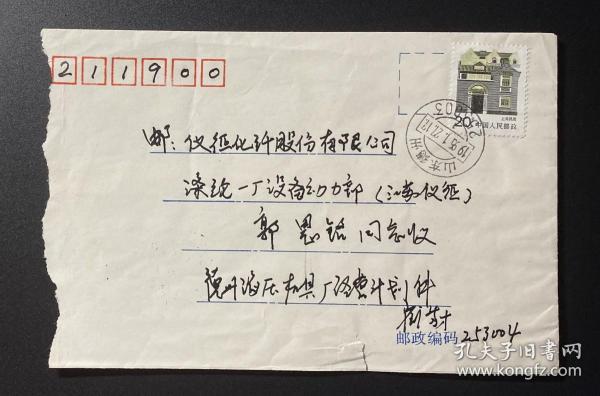 211900
邮：仪征化纤股份有限公司
涤纶一厂设备动力部（江苏仪征）
郭恩铭同志收
德州液压机具厂
邮政编码 253004
上海民居
20分 中国人民邮政
山东德州
孔夫子旧书网
www.kongfz.com